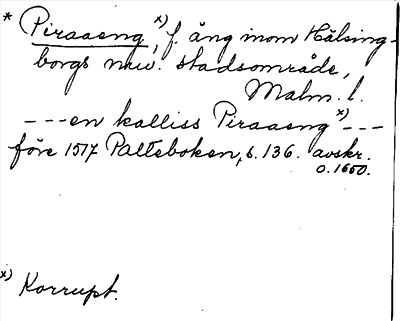 * Piraaeng x), f. äng inom Hälsing-
borgs nuv. stadsområde,
Malm. l.
---en kalliss Piraaeng x)---
före 1517 Palteboken, s. 136. avskr.
o. 1650.
x) Korrupt.